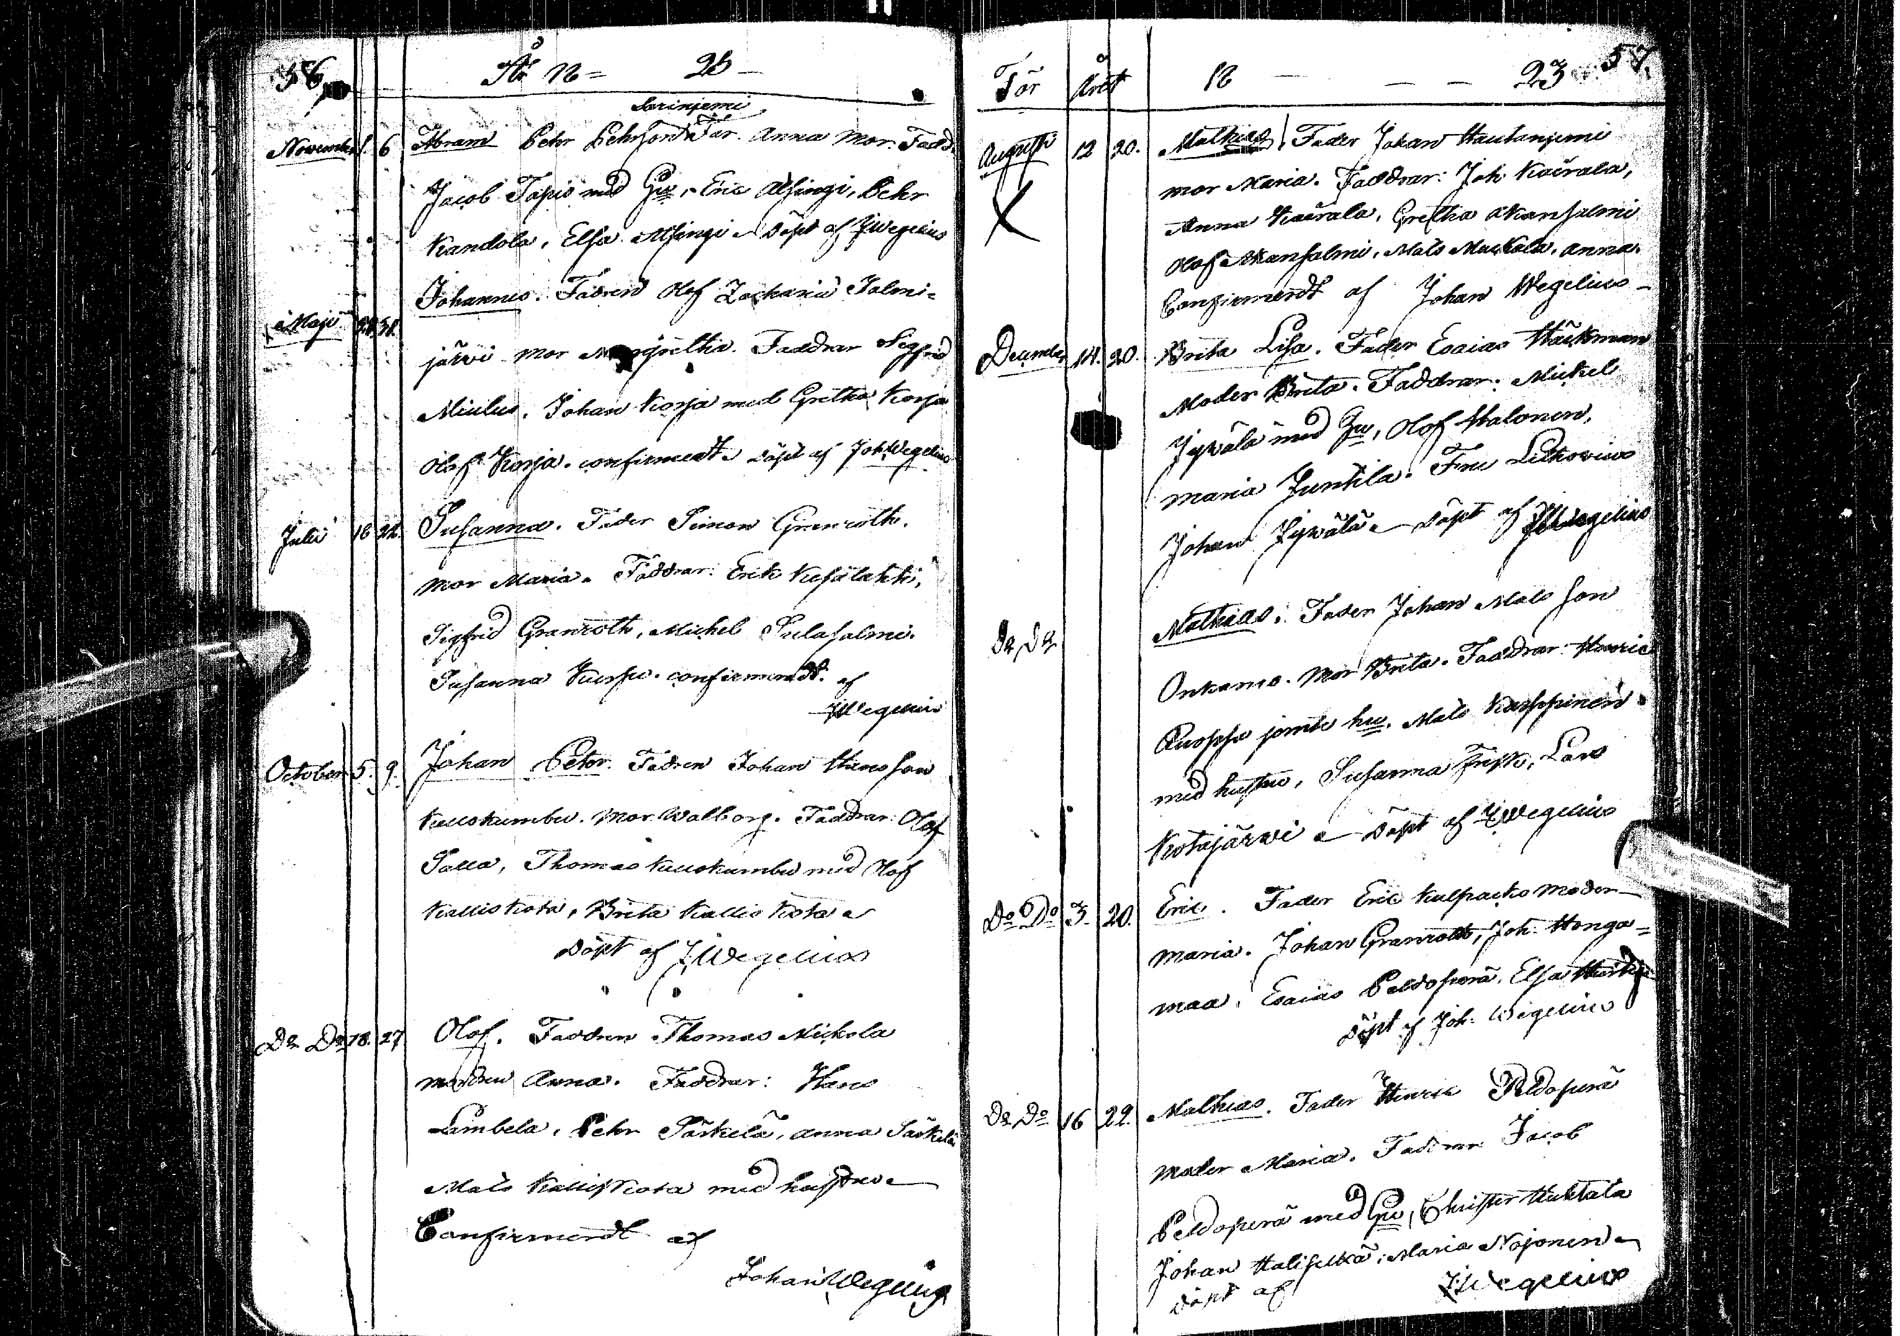 56
År 12 = 23 —
Sarinjemi
November 1. 6 Abram Pehr Pehrsson Far. Anna Mor. Fadd.
Jacob Tapio med Hu, Eric Alsingi, Pehr
Kandola, Elsa Alsingi Döpt af JWegelius
Maji 31. Johannes. Fadren Olof Zacharia Salmi=
järvi mor Margretha. Faddrar Sigfrid
Miulus. Johan Korja med Gretha Korja
Olof Korja. confirmerdt Döpt af Joh Wegelius
Julii 18 22. Susanna. Fader Simon Granroth.
mor Maria. Faddrar: Erik Kesälahti,
Sigfrid Granroth, Michel Sulasalmi.
Susanna confirmerdt. af
JWegelius
October 5. 9. Johan Petter. Fadren Johan Hansson
Kuuskumbu. Mor Walborg. Faddrar: Olof
Salla, Thomas Kuuskumbu med Olof
Kalliskota, Brita Kalliskota
Döpt af JWegelius
Do Do 18. 27 Olof. Fadren Thomas Nickola
modren Anna. Faddrar: Hans
Lambela, Pehr Särkelä, Anna Särkelä
Mats Kalliskota med hustru
Confirmerdt af
Johan Wegelius
57.
För Året 12 — — — 23
Augusti 12 20. Mathias. Fader Johan Hautanjemi
mor Maria. Faddrar: Joh Kairala,
Anna Kairala, Gretha Akansalmi
Olof Akansalmi, Mats Muckala, Anna.
Confirmerdt af Johan Wegelius —
X
December 14. 20. Brita Lisa. Fader Esaias Häckman
Moder Brita. Faddrar: Mickel
Jyvälä med Hu, Olof Halonen,
Maria Juntila. Fru Lithovius
Johan Jyvälä Döpt af JWegelius
Do Do Mathias. Fader Johan Mats son
Onkamo. Mor Brita. Faddrar: Henric
Ruoppa jemte hu. Mats Karppinen
med hustru, Susanna Frisk, Lars
Kotajärvi Döpt af JWegelius
Do Do 3. 20. Eric. Fader Eric Kulpacko Moder
Maria. Johan Granroth, Joh. Honga=
maa. Esaias Peldoperä. Elsa
Döpt af Joh: Wegelius
Do Do 16 22. Mathias. Fader Henric Peldoperä
Moder Maria. Faddrar Jacob
Peldoperä med Hu, Christer Huhtala
Johan, Maria Nojonen
Döpt af JWegelius